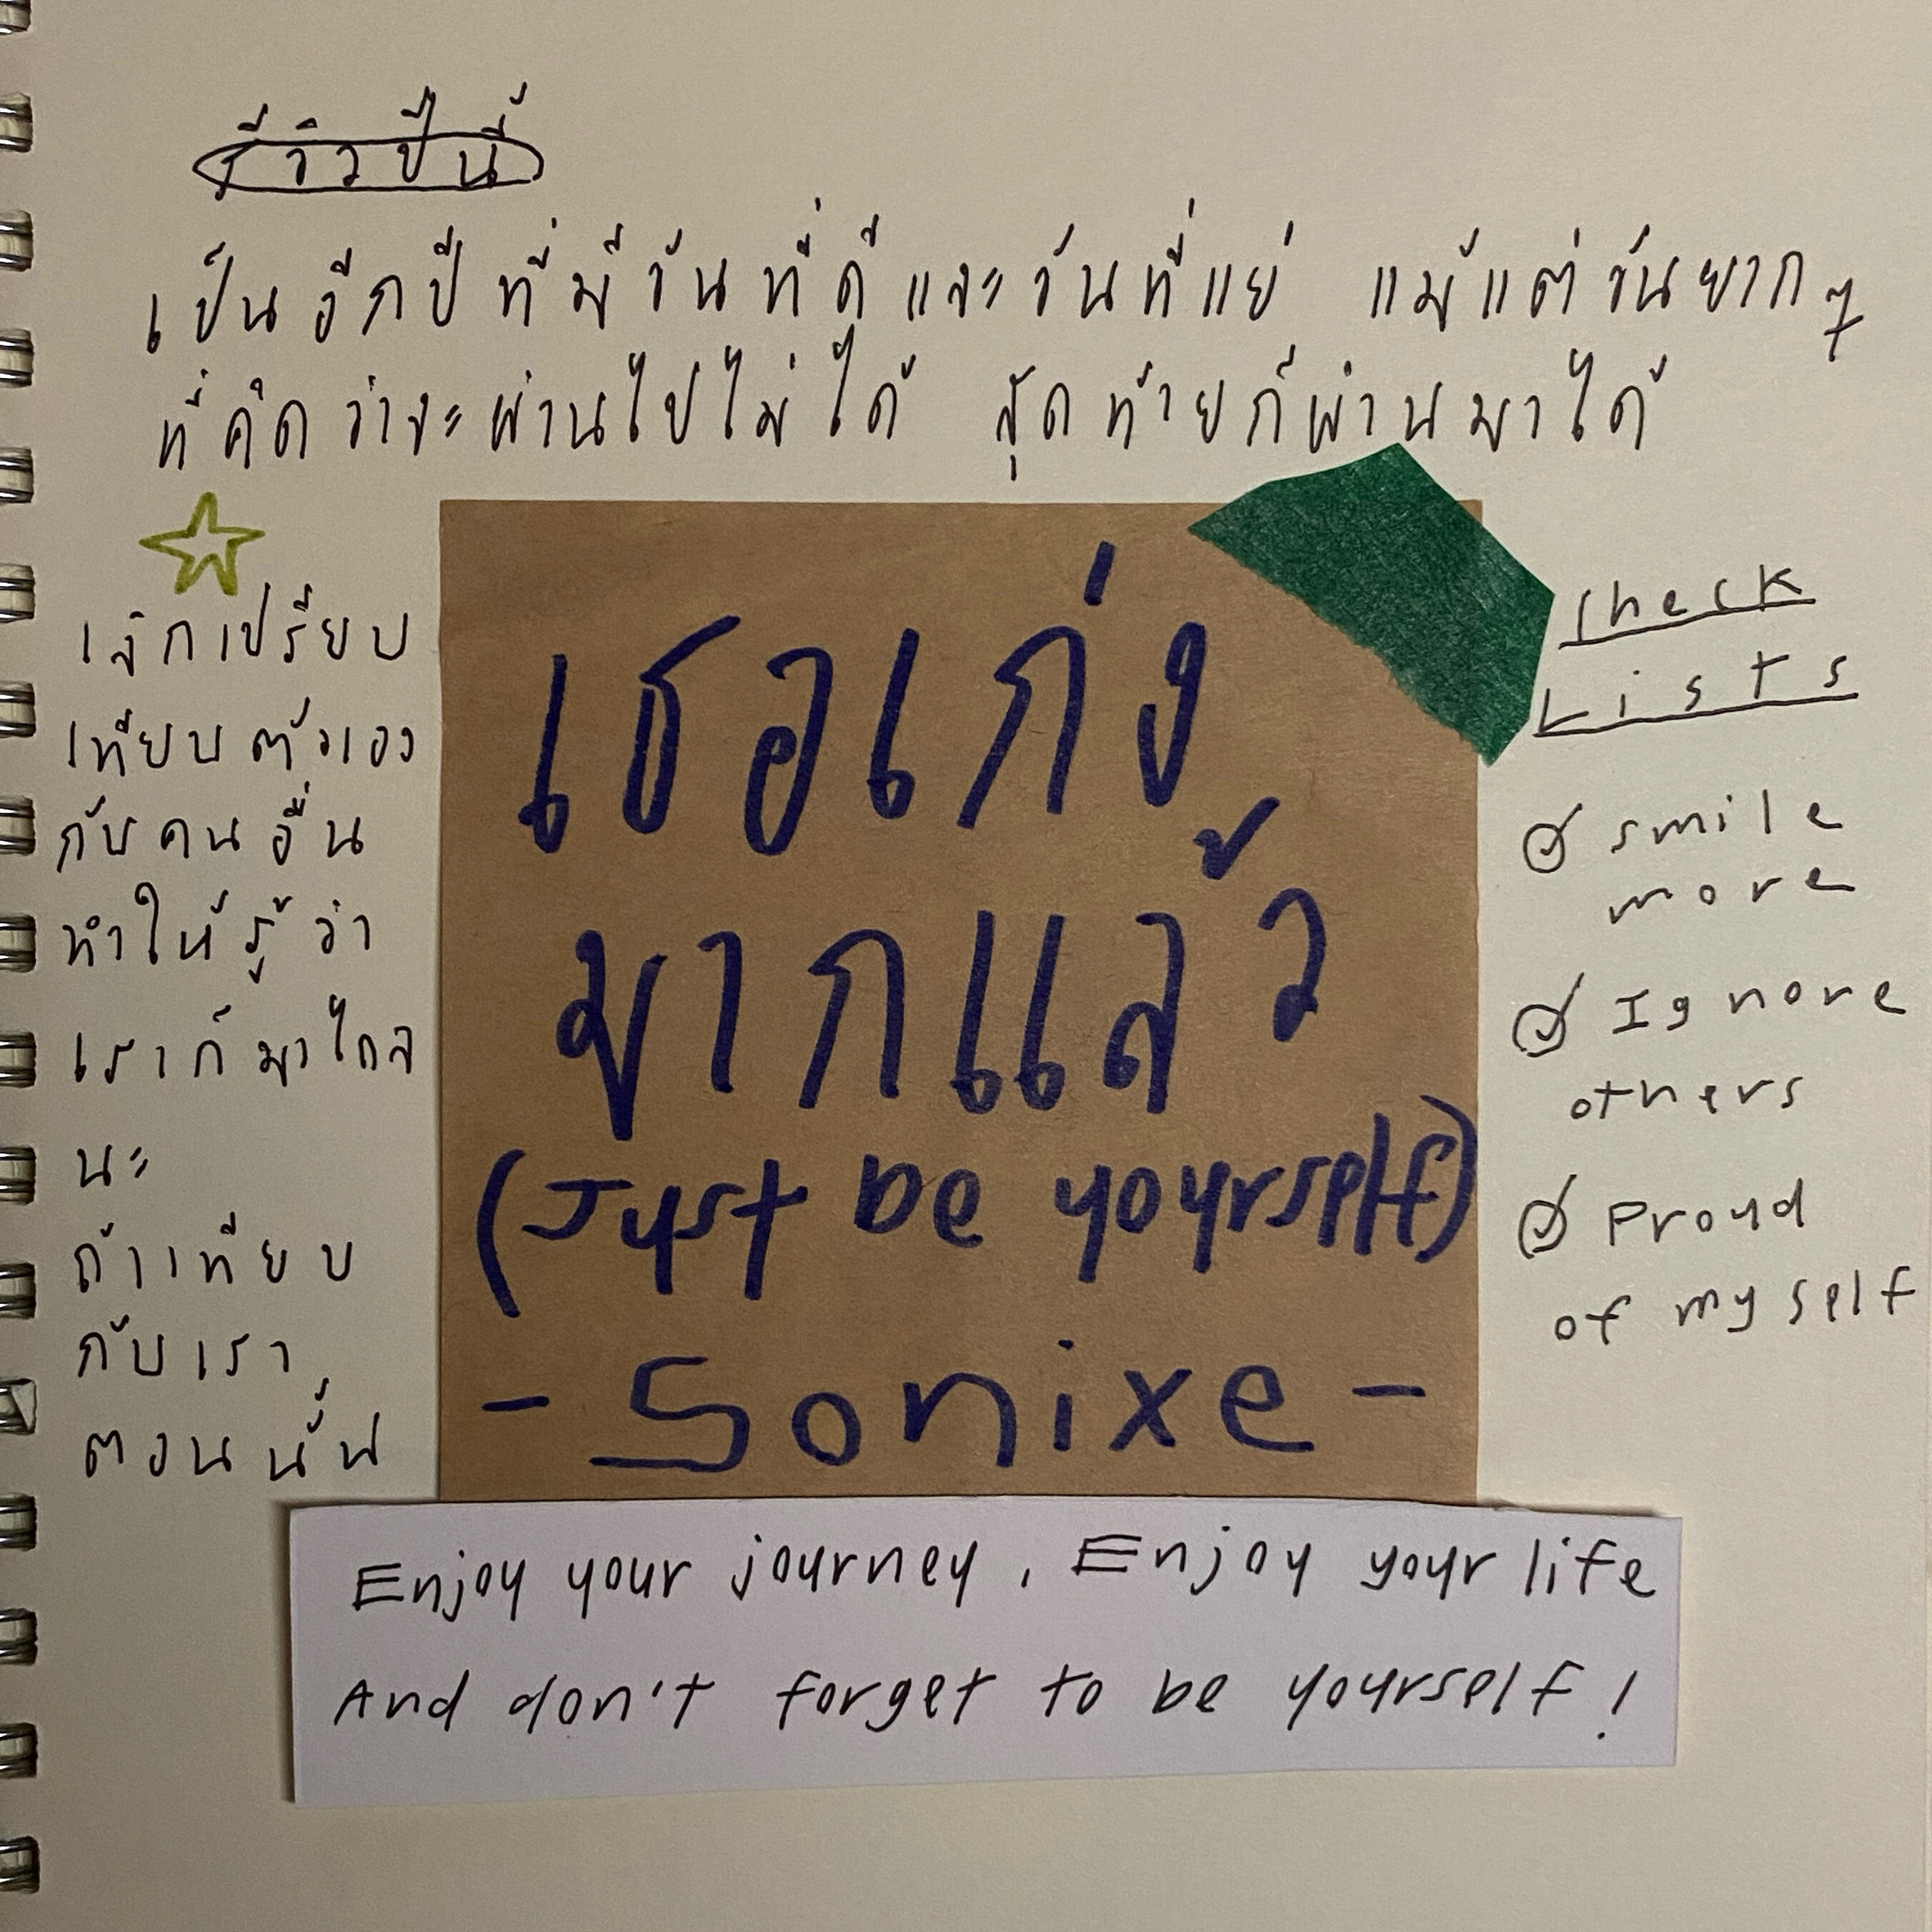 รีวิวปีนี้
เป็นอีกปีที่มีวันที่ดีและวันที่แย่ แม้แต่วันยากๆ
ที่คิดว่าจะผ่านไปไม่ได้ สุดท้ายก็ผ่านมาได้
เลิกเปรียบ
เทียบตัวเอง
กับคนอื่น
ทำให้รู้ว่า
เราก็มาไกล
นะ
ถ้าเทียบ
กับเรา
ตอนนั้น
เธอเก่ง
มากแล้ว
(Just be yourself)
- Sonixe -
Check
Lists
smile
more
Ignore
others
Proud
of myself
Enjoy your journey, Enjoy your life
And don't forget to be yourself!